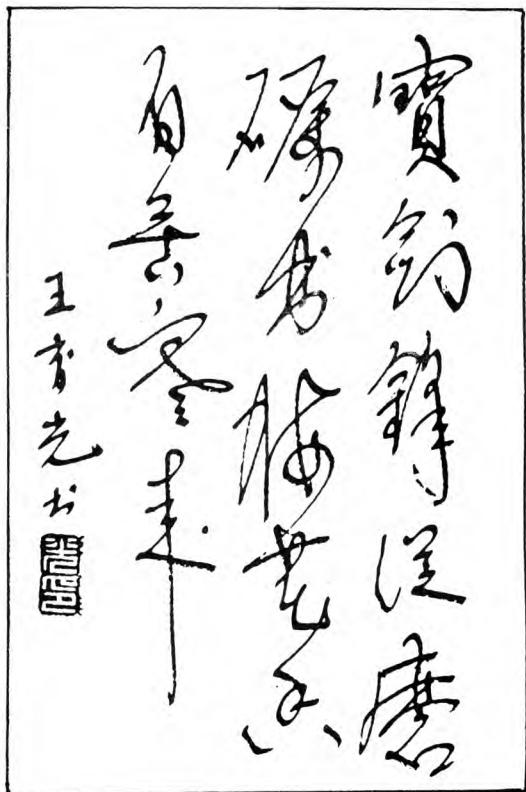 寶劍鋒從磨
礪出梅花香
自苦寒來
王育光书